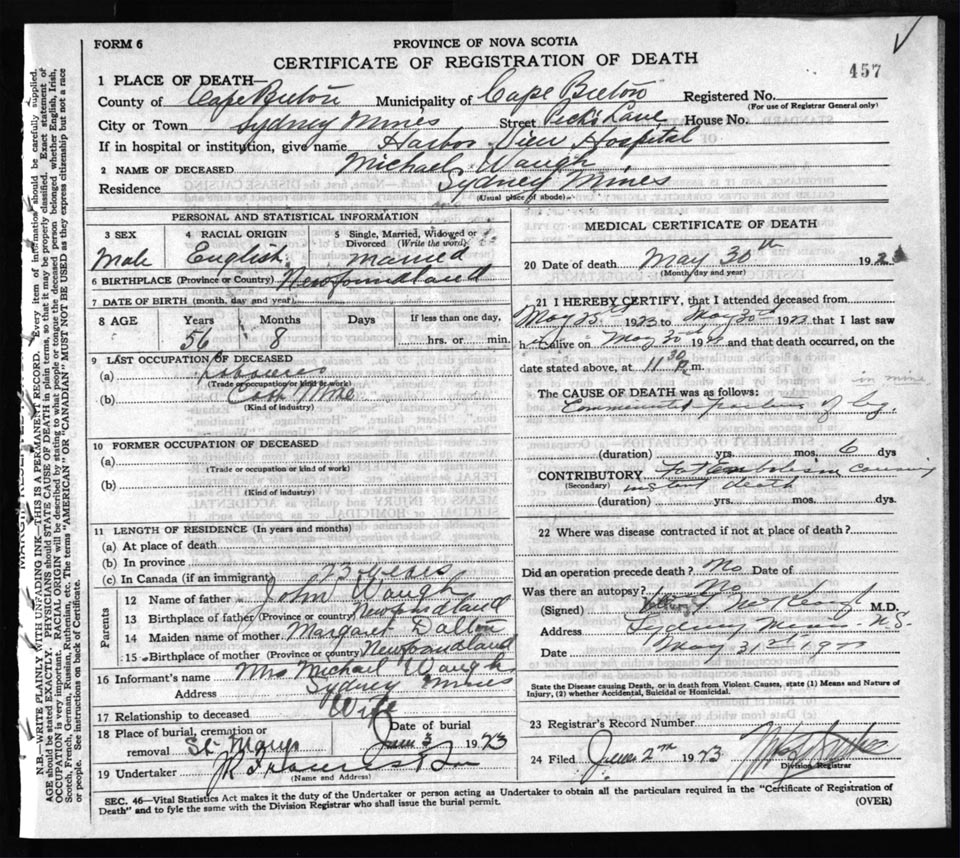 FORM 6
PROVINCE OF NOVA SCOTIA
CERTIFICATE OF REGISTRATION OF DEATH
457
1 PLACE OF DEATH—
County of Cape Breton Municipality of Cape Breton Registered No.
(For use of Registrar General only)
City or Town Sydney Mines Street Pecks Lane House No.
If in hospital or institution, give name Harbor View Hospital
2 NAME OF DECEASED Michael Waugh
Residence Sydney Mines
(Usual place of abode)
PERSONAL AND STATISTICAL INFORMATION
3 SEX
Male
4 RACIAL ORIGIN
English
5 Single, Married, Widowed or Divorced (Write the word)
Married
6 BIRTHPLACE (Province or Country) Newfoundland
7 DATE OF BIRTH (month, day and year)
8 AGE Years Months Days If less than one day,
56 8 hrs. or min.
9 LAST OCCUPATION OF DECEASED
(a) Labourer
(Trade or occupation or kind of work)
(b) Coal Mine
(Kind of industry)
10 FORMER OCCUPATION OF DECEASED
(a)
(Trade or occupation or kind of work)
(b)
(Kind of industry)
11 LENGTH OF RESIDENCE (In years and months)
(a) At place of death
(b) In province
(c) In Canada (if an immigrant) 23 years
Parents
12 Name of father John Waugh
13 Birthplace of father (Province or country) Newfoundland
14 Maiden name of mother Margaret Dalton
15 Birthplace of mother (Province or country) Newfoundland
16 Informant's name Mrs Michael Waugh
Address Sydney Mines
17 Relationship to deceased Wife
18 Place of burial, cremation or removal St. Marys
Date of burial
June 3 1923
19 Undertaker
(Name and Address)
MEDICAL CERTIFICATE OF DEATH
20 Date of death May 30th 192
(Month, day and year)
21 I HEREBY CERTIFY, that I attended deceased from
May 25th 1923 to May 30th 1923 that I last saw
h alive on May 30th 19 and that death occurred, on the
date stated above, at 11 30 P.m.
The CAUSE OF DEATH was as follows: in mine
Comminuted fracture of leg
(duration) yrs. mos. 6 dys
CONTRIBUTORY Fat Embolism causing
(Secondary) instant death
(duration) yrs. mos. dys.
22 Where was disease contracted if not at place of death?
Did an operation precede death? No Date of
Was there an autopsy? No
(Signed) M.D.
Address Sydney Mines N.S.
Date May 31st 19
State the Disease causing Death, or in death from Violent Causes, state (1) Means and Nature of Injury, (2) whether Accidental, Suicidal or Homicidal.
23 Registrar's Record Number
24 Filed June 2nd 1923
Division Registrar
SEC. 46—Vital Statistics Act makes it duty of the Undertaker or person acting as Undertaker to obtain all the particulars required in the "Certificate of Registration of
Death" and to fyle the same with the Division Registrar who shall issue the burial permit.
(OVER)
N.B.—WRITE PLAINLY WITH UNFADING INK—THIS IS A PERMANENT RECORD. Every item of information should be carefully supplied.
AGE should be stated EXACTLY. PHYSICIANS should STATE CAUSE OF DEATH in plain terms, so that it may be properly classified. Exact statement of
OCCUPATION is very important. RACIAL ORIGIN will be described by stating to what people or tongue the deceased person belonged whether English, Irish,
Scotch, French, German, Russian, Ruthenian, etc. The terms "AMERICAN" OR "CANADIAN" MUST NOT BE USED as they express citizenship but not a race
or people. See instructions on back of Certificate.